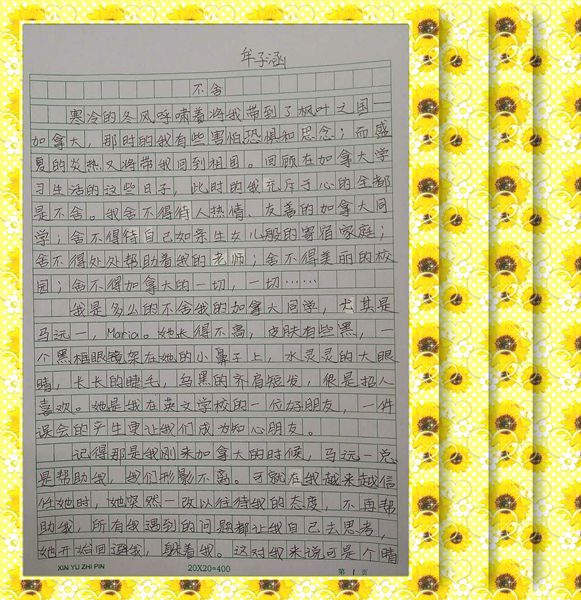 牟子涵
不舍
寒冷的冬风呼啸着将我带到了枫叶之国一
加拿大，那时的我有些害怕恐惧和思念；而盛
夏的炎热又将带我回到祖国。回顾在加拿大学
习生活的这些日子，此时的我充斥于心的全都
是不舍。我舍不得待人热情、友善的加拿大同
学；舍不得待自己如亲生女儿般的寄宿家庭；
舍不得处处帮助着我的老师；舍不得美丽的校
园；舍不得加拿大的一切，一切……
我是多么的不舍我的加拿大同学，尤其是
马远一，Maria。她长得不高，皮肤有些黑，一
个黑框眼镜架在她的小鼻子上，水灵灵的大眼
睛，长长的睫毛，乌黑的齐肩短发，很是招人
喜欢。她是我在英文学校的一位好朋友，一件
误会的产生更让我们成为知心朋友。
记得那是我刚来加拿大的时候，马远一总
是帮助我，我们形影不离。可就在我越来越信
任她时，她突然一改以往待我的态度，不再帮
助我，所有我遇到的问题都让我自己去思考，
她开始回避我，躲着我。这对我来说可是个晴
XIN YU ZHI PIN 20X20=400 第 1 页